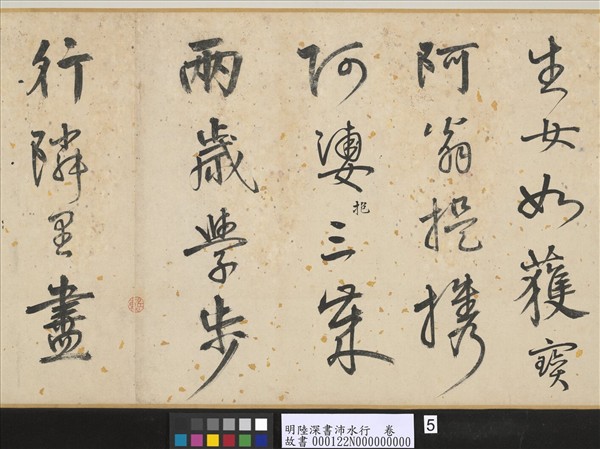 生女如獲寶
阿翁提攜
阿婆抱三年
兩歲學步
行隣里盡
明陸深書沛水行 卷
故書 000122N000000000
5